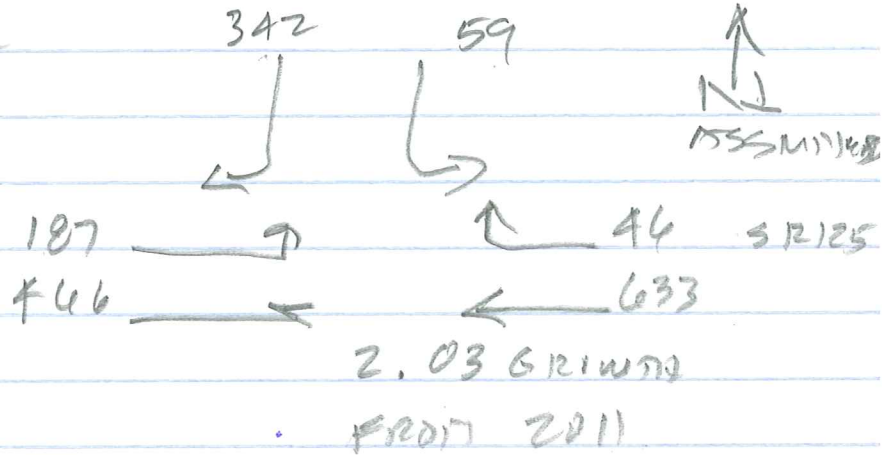 342 59
N
ASSUMED
187 46 SR125
466 633
2.03 GROWTH
FROM 2011